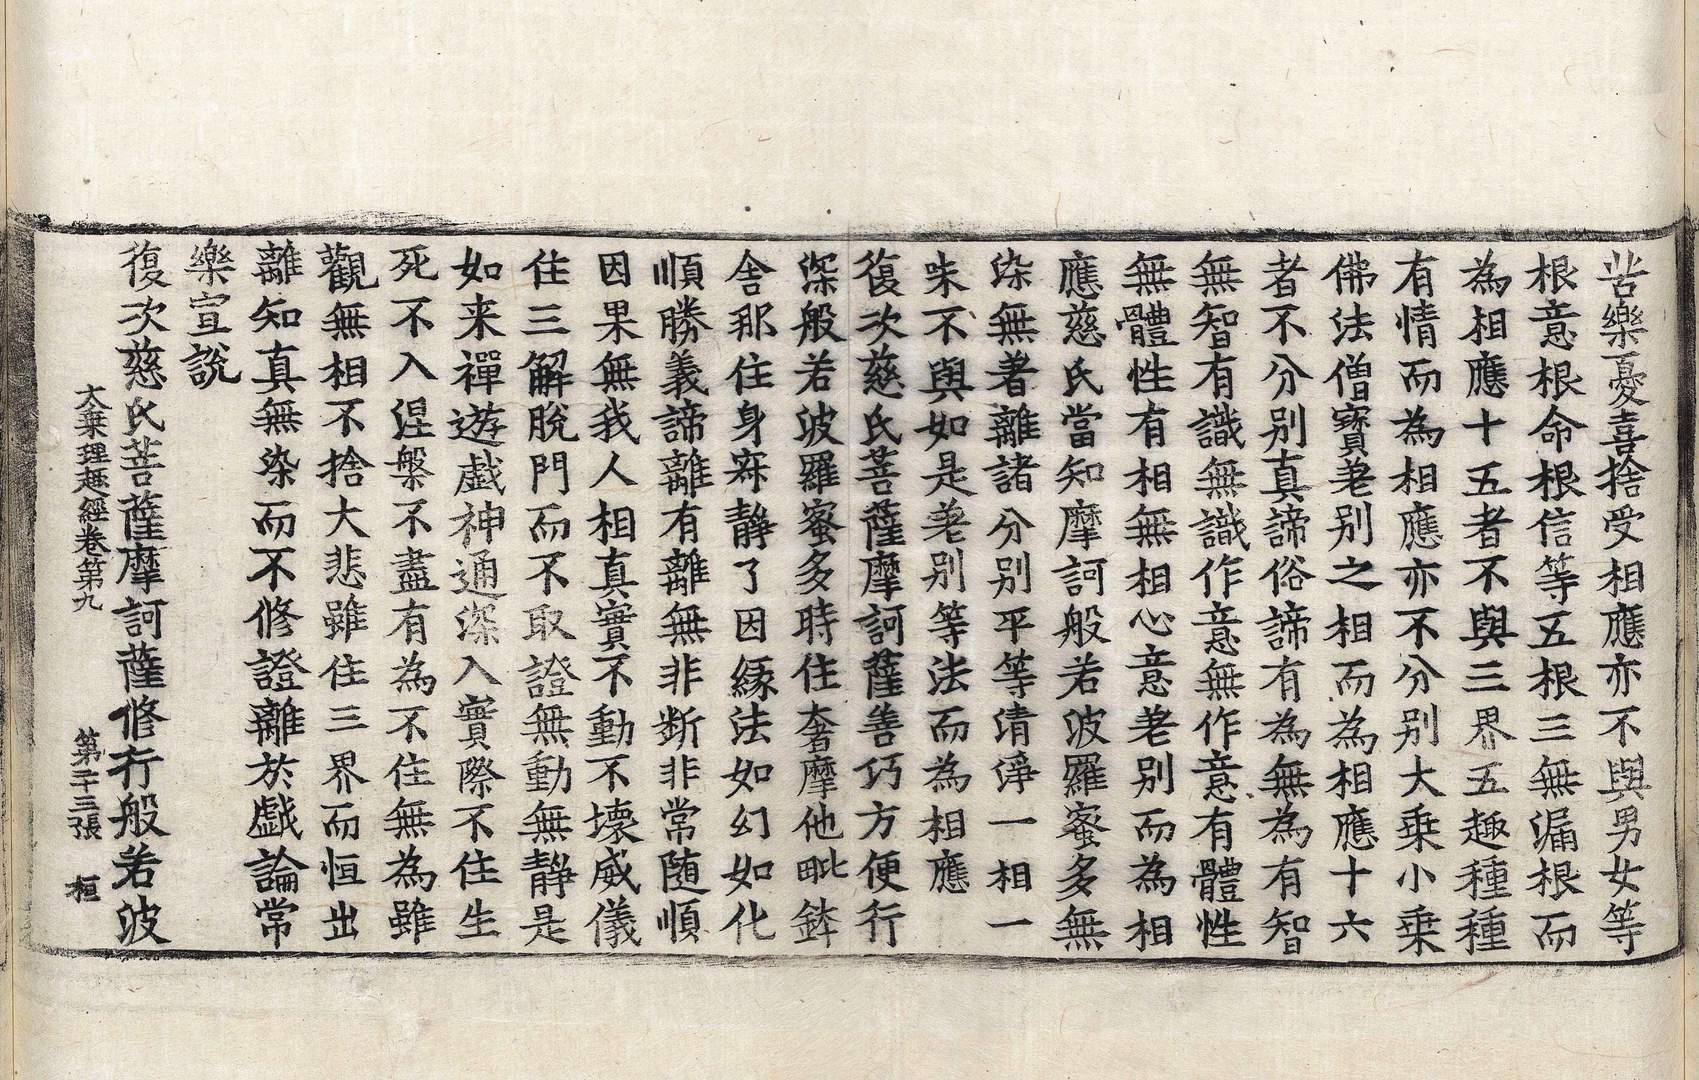 苦樂憂喜捨受相應亦不與男女等
根意根命根信等五根三無漏根而
為相應十五者不與三界五趣種種
有情而為相應亦不分别大乗小乗
佛法僧寳差别之相而為相應十六
者不分别真諦俗諦有為無為有智
無智有識無識作意無作意有體性
無體性有相無相心意差别而為相
應慈氏當知摩訶般若波羅蜜多無
染無著離諸分别平等清淨一相一
味不與如是差别等法而為相應
復次慈氏菩薩摩訶薩善巧方便行
深般若波羅蜜多時住奢摩他毗鉢
舍那住身寂靜了因縁法如幻如化
順勝義諦離有離無非断非常随順
因果無我人相真實不動不壊威儀
住三解脫門而不取證無動無靜是
如来禪遊戲神通深入實際不住生
死不入涅槃不盡有為不住無為雖
觀無相不捨大悲雖住三界而恒出
離知真無染而不修證離於戯論常
樂宣説
復次慈氏菩薩摩訶薩修行般若波
大乗理趣經卷第九 第二十三張 桓